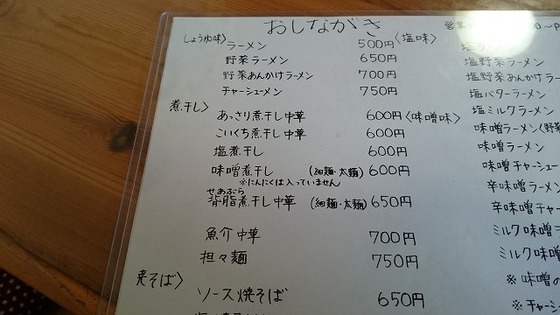 おしながき
営業
しょうゆ味
ラーメン 500円
野菜ラーメン 650円
野菜あんかけラーメン 700円
チャーシューメン 750円
煮干し〉
あっさり煮干し中華 600円
こいくち煮干し中華 600円
塩煮干し 600円
味噌煮干し (細麺・太麺) 600円
※にんにくは入っていません
せあぶら
背脂煮干し中華 (細麺・太麺) 650円
魚介中華 700円
担々麺 750円
焼そば〉
ソース焼そば 650円
〈塩味〉
塩野菜ラーメン
塩野菜あんかけ
塩バターラーメン
塩ミルクラーメン
〈味噌味〉
味噌ラーメン(野菜
味噌ラーメン
味噌チャーシュー
辛味噌ラーメ
辛味噌チャ
ミルク味噌ラ
ミルク味噌
※味噌の
※チャー